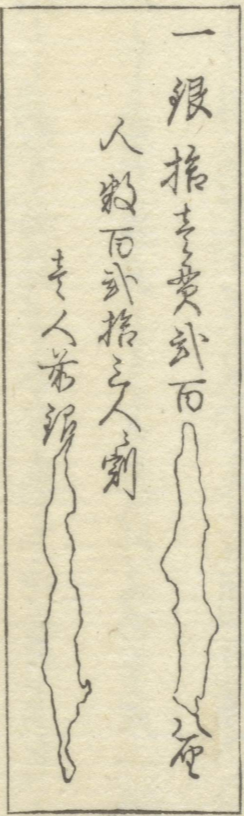 一銀拾壱貫弐百
八厘
人数百弐拾三人割
壱人前銀